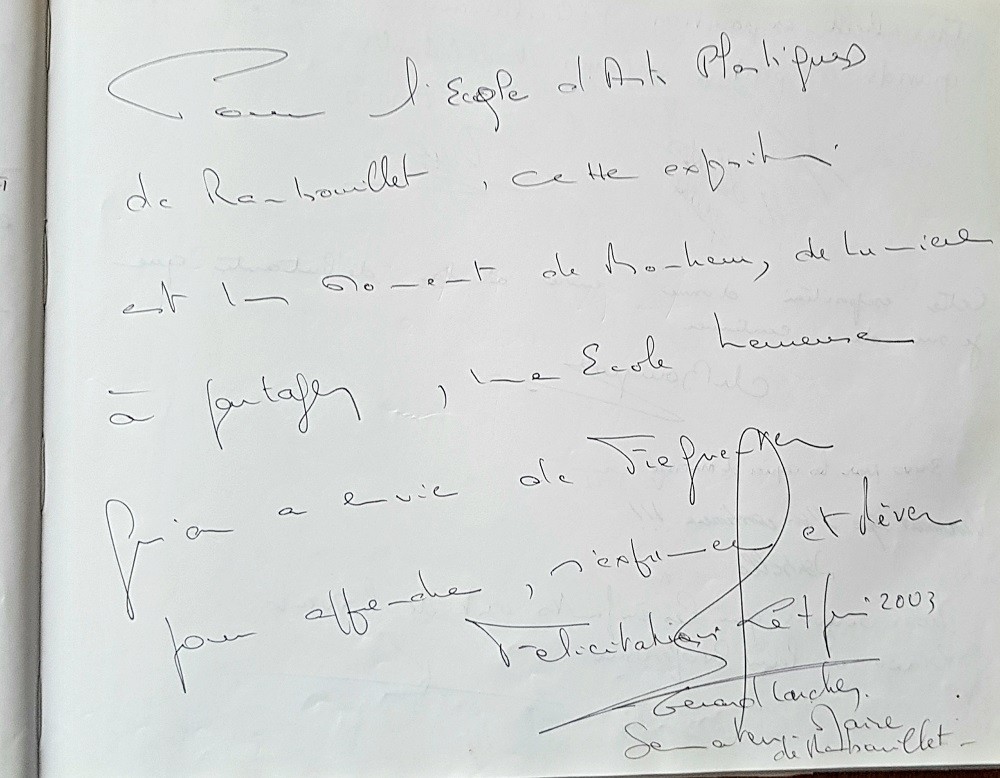 Pour l'Ecole d'Arts Plastiques
de Rambouillet, cette exposition
est un moment de Bonheur, de Lumière
à partager, une Ecole heureuse
qu'on a envie de fréquenter
pour apprendre, s'exprimer et rêver
Félicitations Le 7 juin 2003
Gérard Larcher.
Sénateur Maire
de Rambouillet -